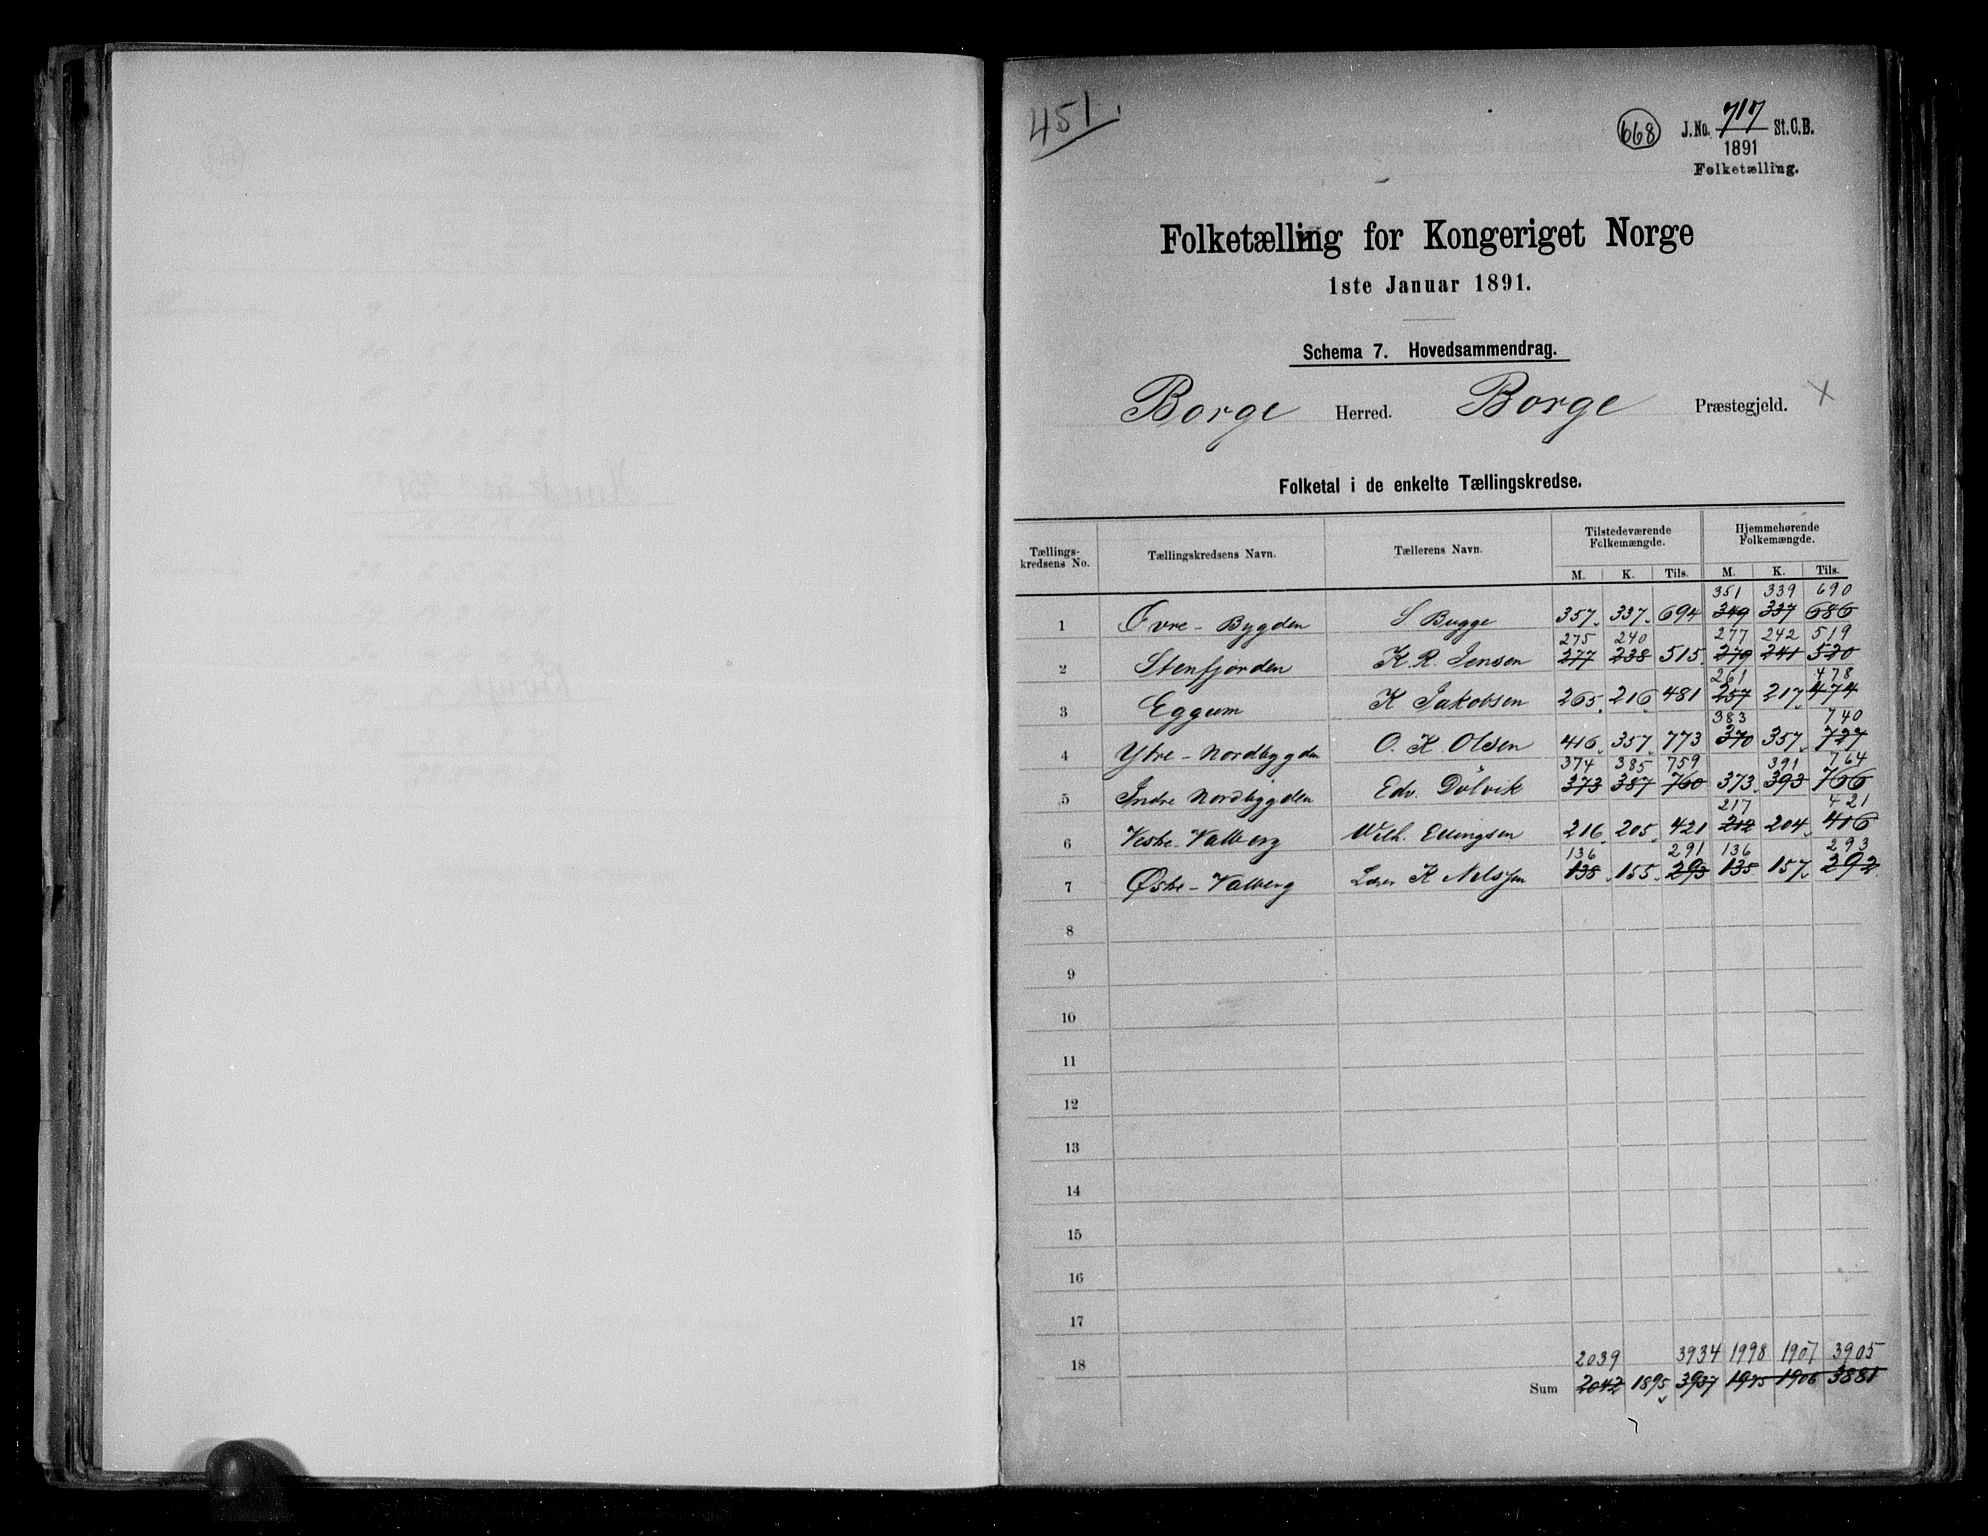 451.
668
J. No. 717 St. C. B.
1891
Folketælling.
Folketælling for Kongeriget Norge
1ste Januar 1891.
Schema 7. Hovedsammendrag.
Borge Herred. Borge Præstegjeld. X
Folketal i de enkelte Tællingskredse.
Tællings-kredsens No. Tællingskredsens Navn. Tællerens Navn. Tilstedeværende Folkemængde. Hjemmehørende Folkemængde.
M. K. Tils. M. K. Tils.
351 339 690
1 Øvre-Bygden S Bugge 357 337 694 349 337 686
275 240 277 242 519
2 Stenfjorden K. R. Jensen 277 238 515 279 241 520
261 478
3 Eggum K Jakobsen 265 216 481 257 217 474
383 740
4 Ytre-Nordbygden O. K. Olsen 416 357 773 370 357 727
374 385 759 391 764
5 Indre Nordbygden Edv. Dølvik 373 387 760 373 393 766
217 421
6 Vestre-Valberg Wilh. Ellingsen 216 205 421 212 204 416
136 291 136 293
7 Østre-Valberg K Nelssen 138 155 293 135 157 292
8
9
10
11
12
13
14
15
16
17
2039 3934 1998 1907 3905
18
Sum 2042 1895 3937 1975 1906 3881